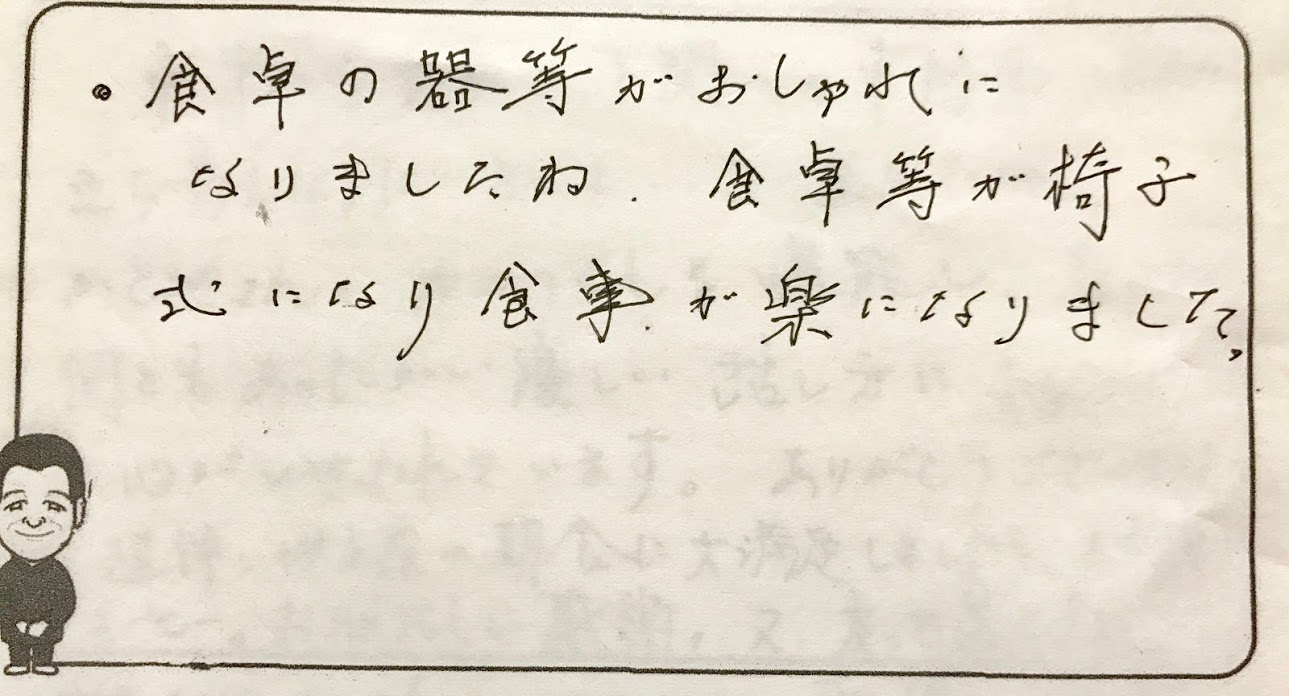 ◎ 食卓の器等がおしゃれに
なりましたね. 食卓等が椅子
式になり食事が楽になりました。